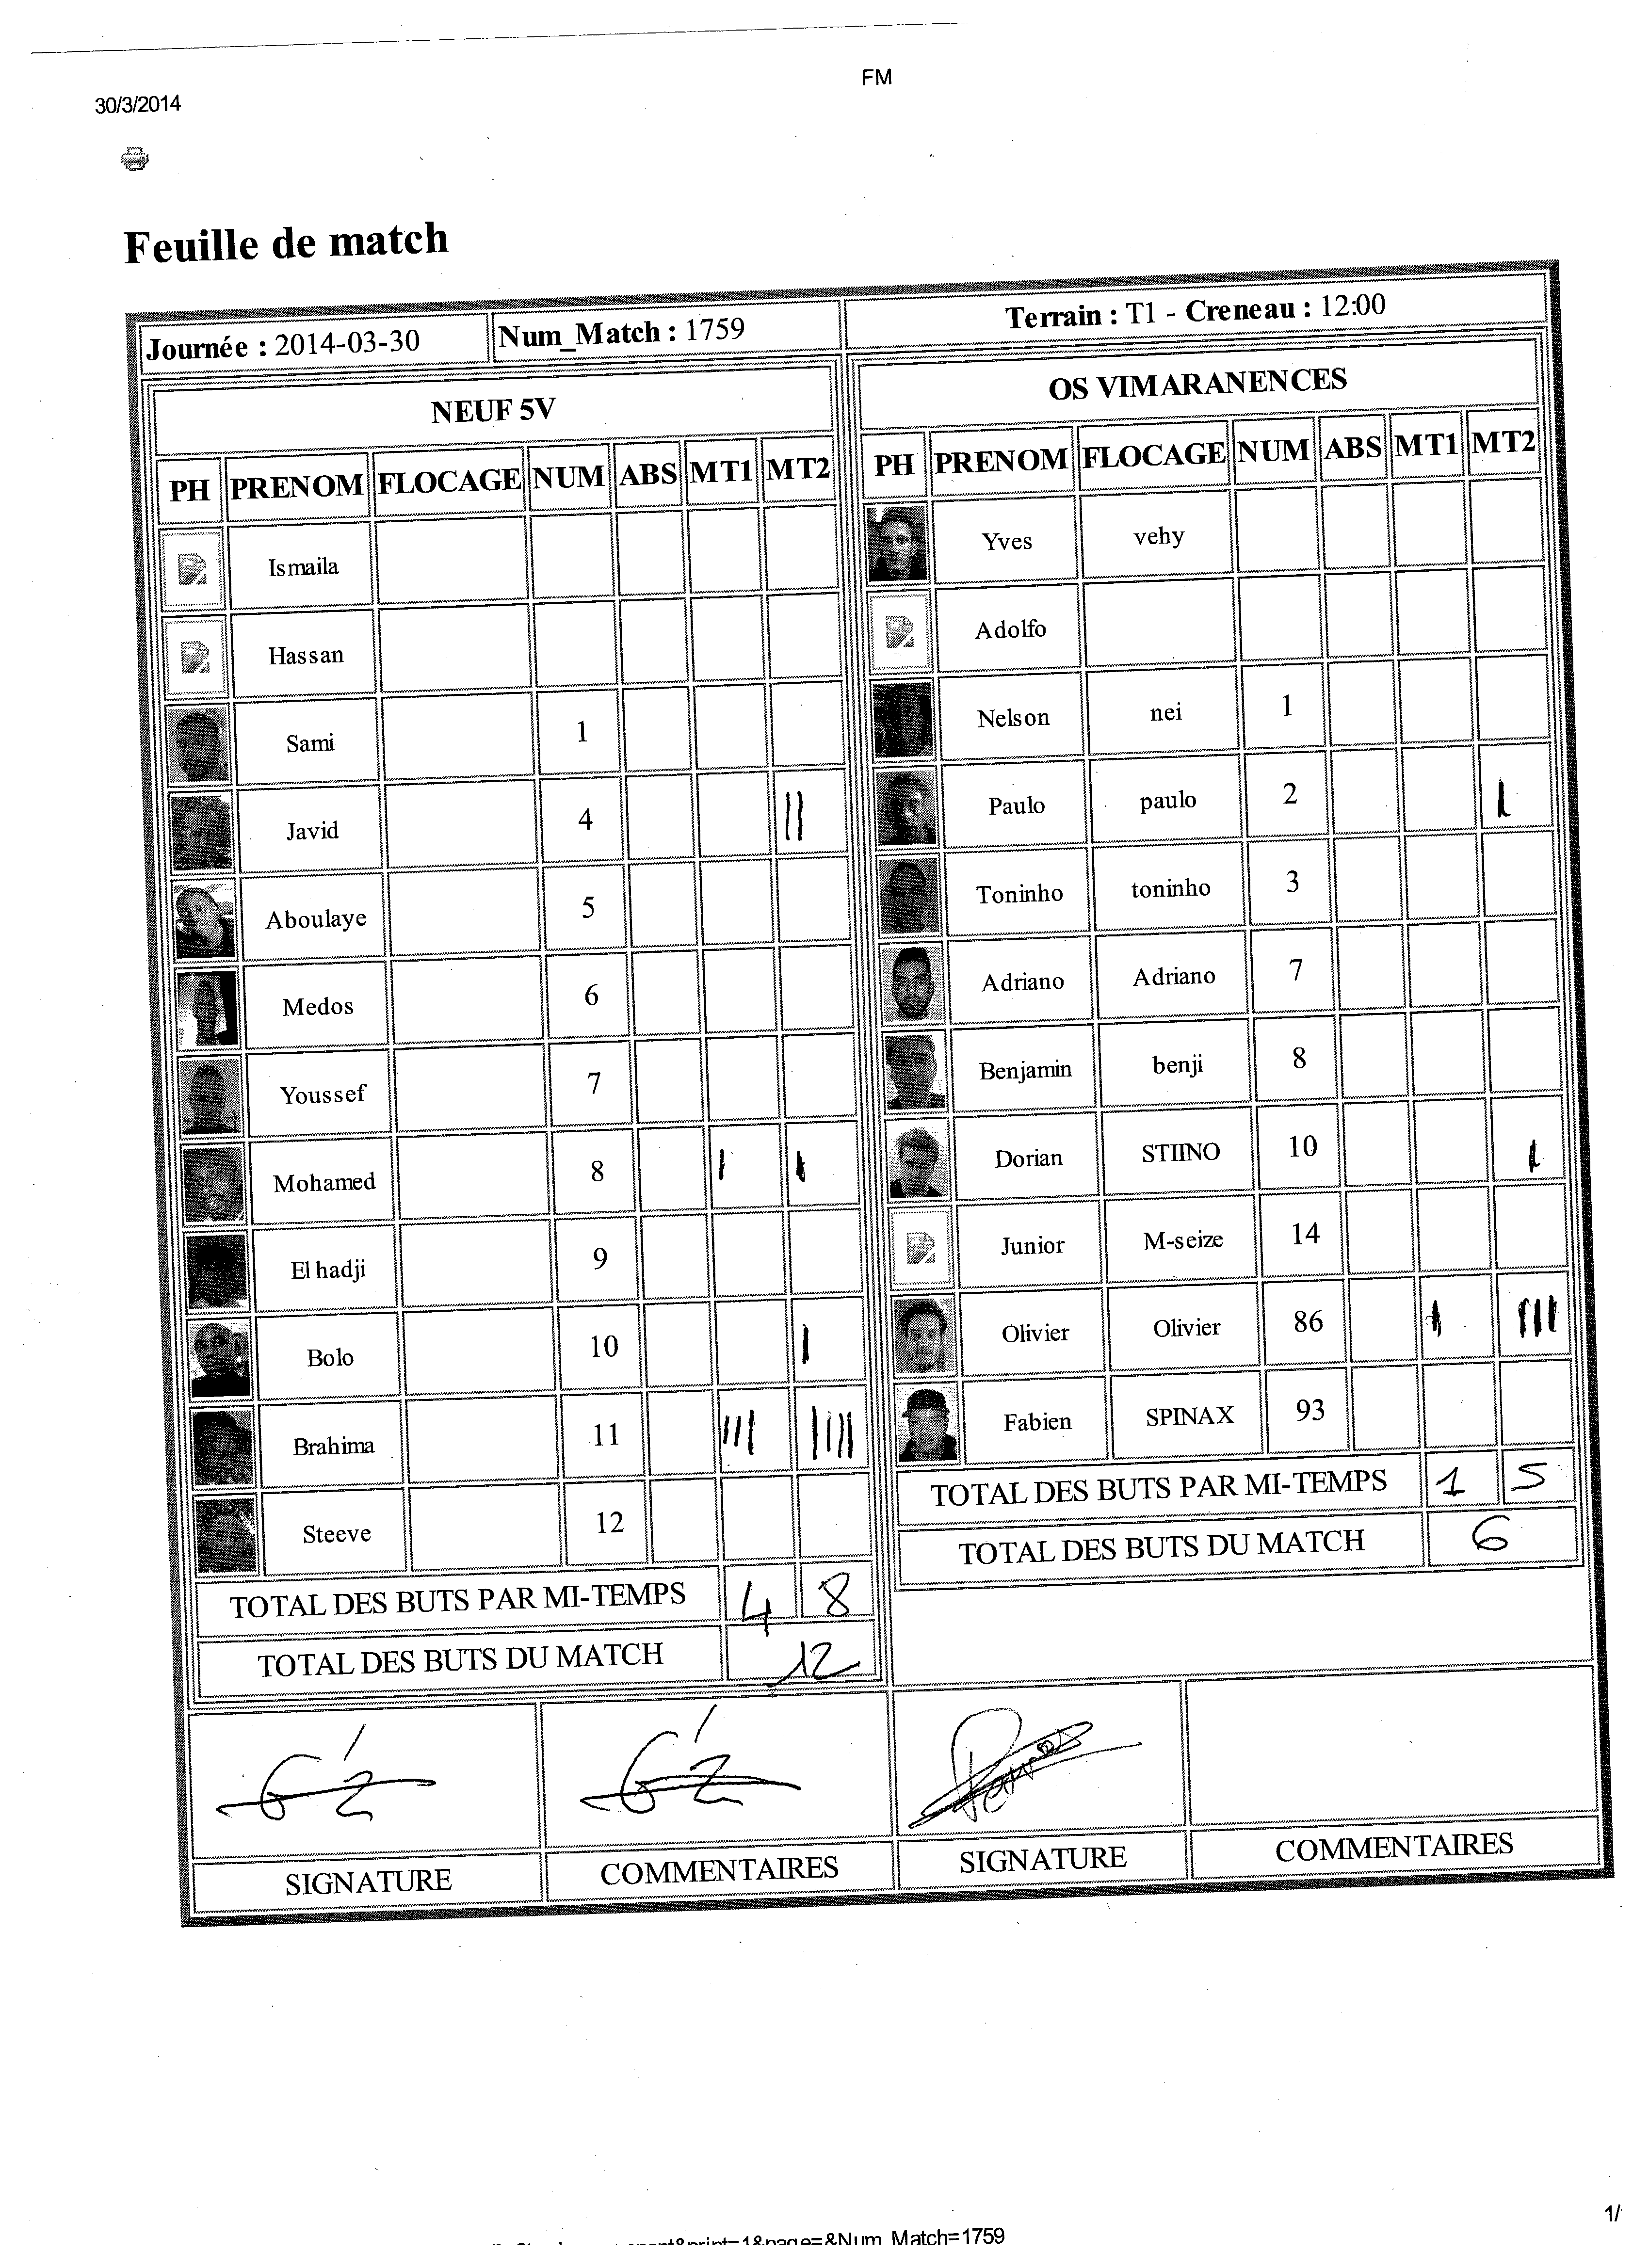 FM
30/3/2014
Feuille de match
Journée : 2014-03-30 Num_Match : 1759 Terrain : T1 - Creneau : 12:00
NEUF 5V
PH PRENOM FLOCAGE NUM ABS MT1 MT2
Ismaila
Hassan
Sami 1
Javid 4 ||
Aboulaye 5
Medos 6
Youssef 7
Mohamed 8 | |
El hadji 9
Bolo 10 |
Brahima 11 ||| ||||
Steeve 12
TOTAL DES BUTS PAR MI-TEMPS 4 8
TOTAL DES BUTS DU MATCH 12
OS VIMARANENCES
PH PRENOM FLOCAGE NUM ABS MT1 MT2
Yves vehy
Adolfo
Nelson nei 1
Paulo paulo 2 |
Toninho toninho 3
Adriano Adriano 7
Benjamin benji 8
Dorian STIINO 10 |
Junior M-seize 14
Olivier Olivier 86 | |||
Fabien SPINAX 93
TOTAL DES BUTS PAR MI-TEMPS 1 5
TOTAL DES BUTS DU MATCH 6
SIGNATURE COMMENTAIRES SIGNATURE COMMENTAIRES
1/
&print=1&page=&Num_Match=1759